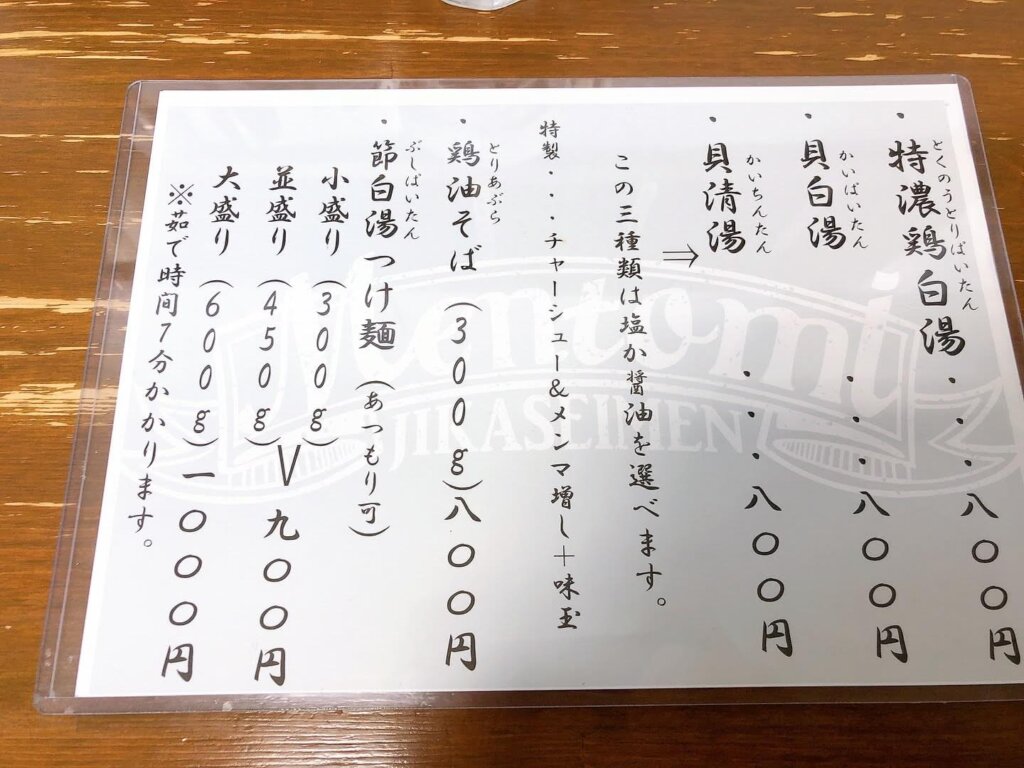 ・特濃鶏白湯・・・八〇〇円
とくのうとりぱいたん
・貝白湯・・・八〇〇円
かいぱいたん
・貝清湯・・・八〇〇円
かいちんたん
⇒
この三種類は塩か醤油を選べます。
特製・・・チャーシュー&メンマ増し+味玉
・鶏油そば(300g)八〇〇円
とりあぶら
・節白湯つけ麺(あつもり可)
ぶしぱいたん
小盛り(300g)
並盛り(450g)>九〇〇円
大盛り(600g)一〇〇〇円
※茹で時間7分かかります。
Mentomi
JIKASEIMEN